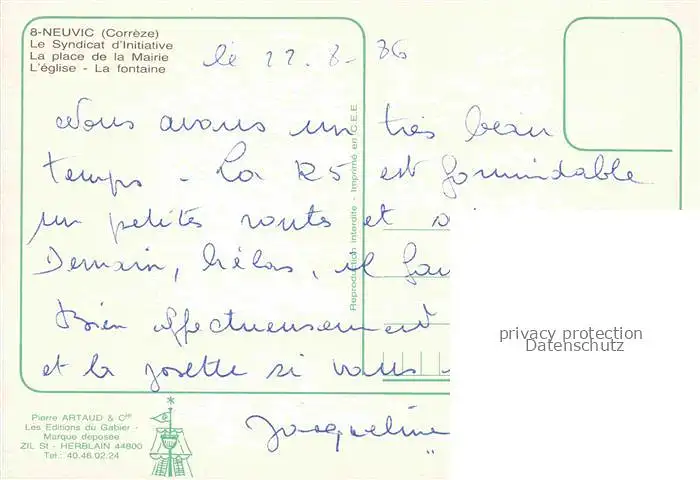 8-NEUVIC (Corrèze)
Le Syndicat d'Initiative
La place de la Mairie
L'église - La fontaine
le 22.8-86
Nous avons un très beau
temps - La R5 est formidable
sur petites routes et
Demain, hélas, il fau
Bien affectueusement
et la Josette si vous
Jacqueline
Reproduction interdite - Imprimé en C.E.E
privacy protection
Datenschutz
Pierre ARTAUD & Cie
Les Editions du Gabier -
Marque deposée
ZIL St - HERBLAIN 44800
Tel.: 40.46.02.24